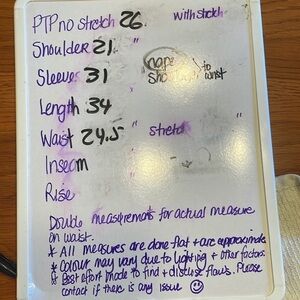 PTP no stretch 26 " with stretch
Shoulder 21 "
nape
Sleeve 31 shoulder to wrist
Length 34 "
Waist 24.5 " stretch "
Inseam "
Rise
Double measurements for actual measure
on waist.
* All measures are done flat + are approximate
* Colour may vary due to lighting + other factors
* Best effort made to find + disclose flaws. Please
contact if there is any issue ☺